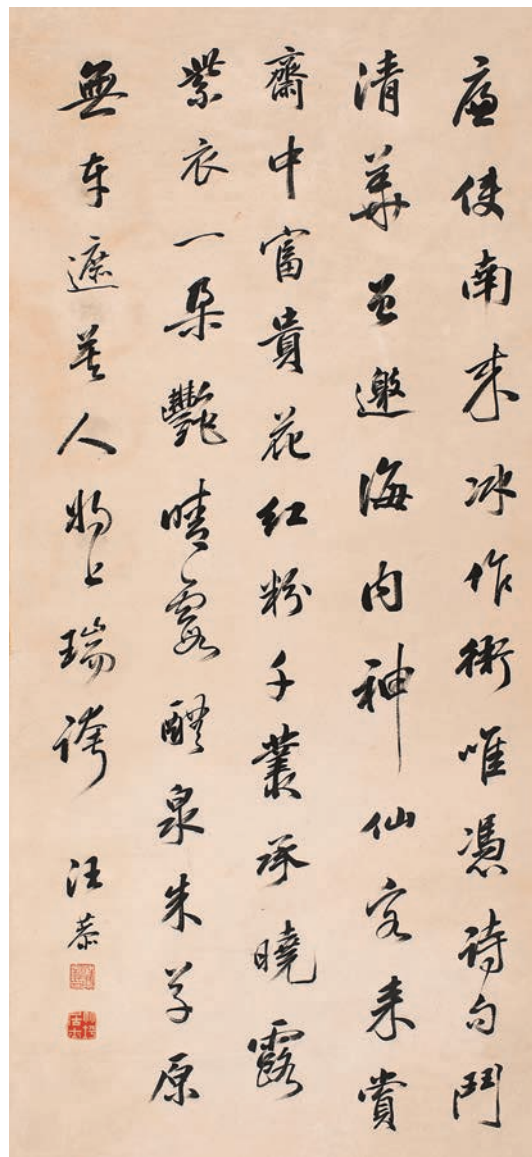 廉使南来冰作衙唯憑詩句鬥
清華曾邀海内神仙客来賞
齋中富貴花红粉千叢承曉露
紫衣一朵艷晴霞醴泉朱草原
無本遮莫人將上瑞誇
汪恭